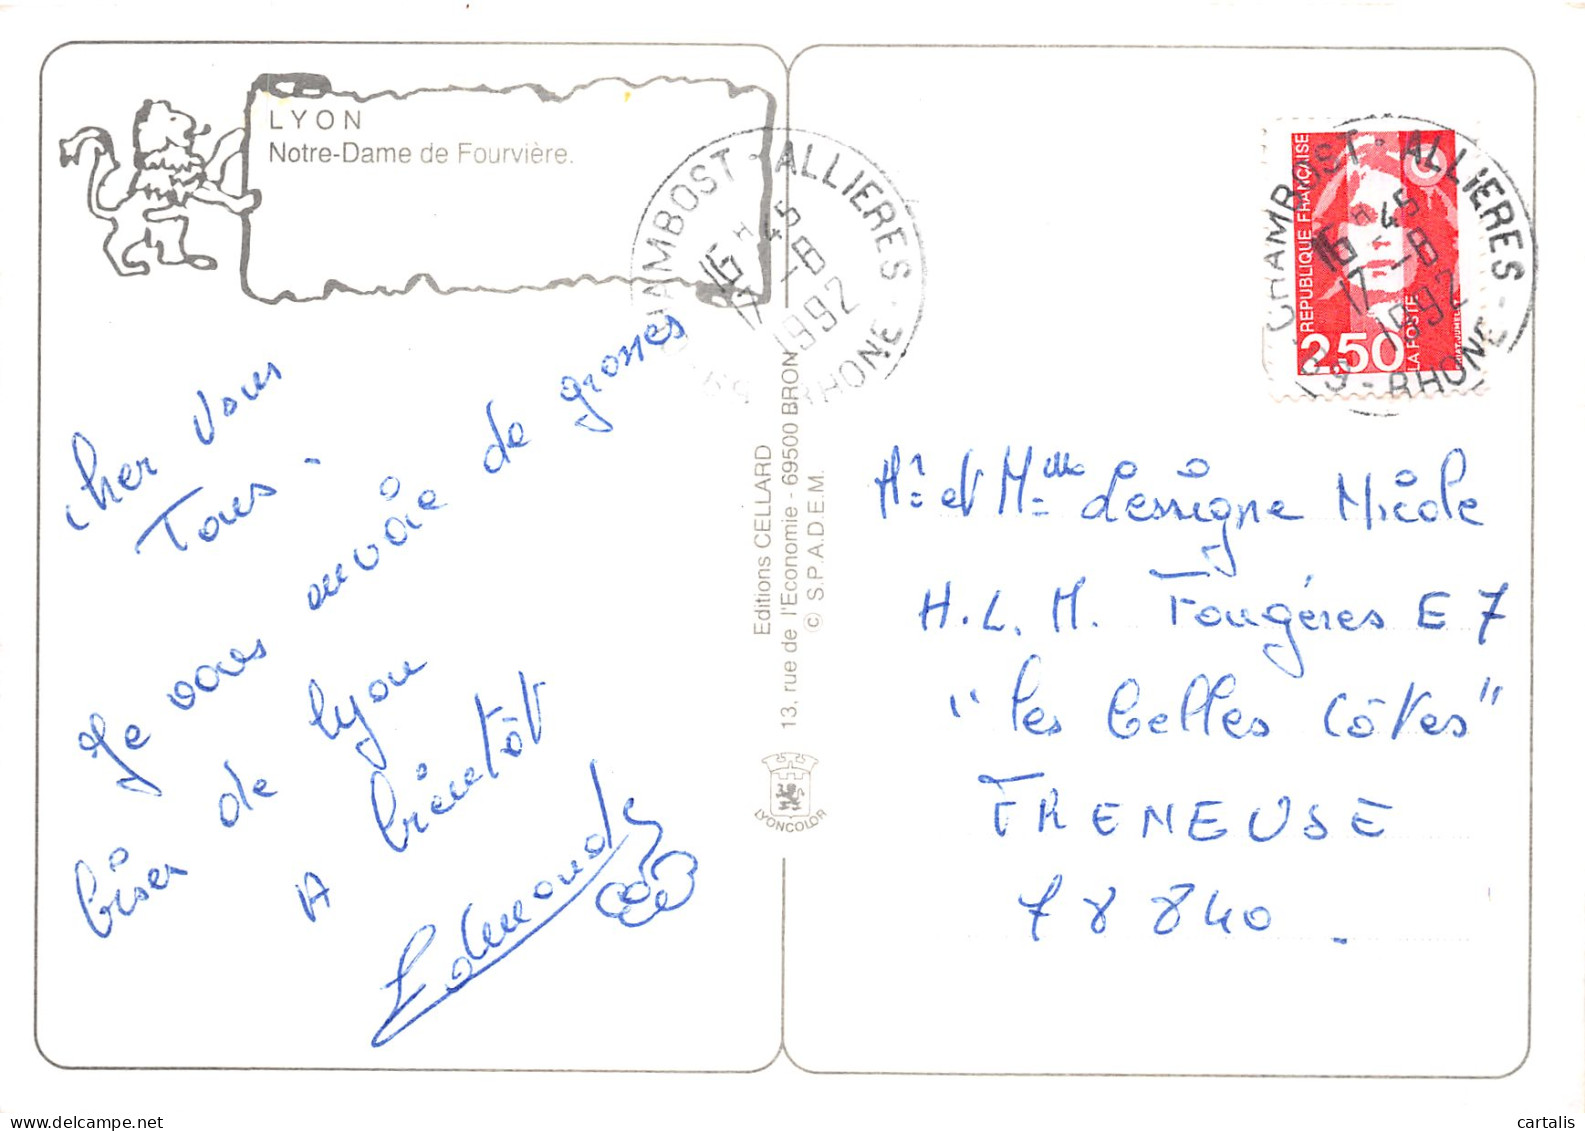 LYON
Notre-Dame de Fourvière.
CHAMBOST - ALLIERES
16H 45
17 -8
1992
69 - RHONE
cher vous
Tous -
Je vous envoie de grosses
bises de Lyon
A bientôt
Edmonde
Editions CELLARD
13, rue de l'Economie - 69500 BRON
© S.P.A.D.E.M.
LYONCOLOR
REPUBLIQUE FRANÇAISE
2,50
LA POSTE
CHAMBOST - ALLIERES
16H 45
17 -8
1992
69 - RHONE
Mr et Mme Lessigne Nicole
H.L.M. Fougères E 7
"les belles côtes"
FRENEUSE
78840.
cartalis
delcampe.net